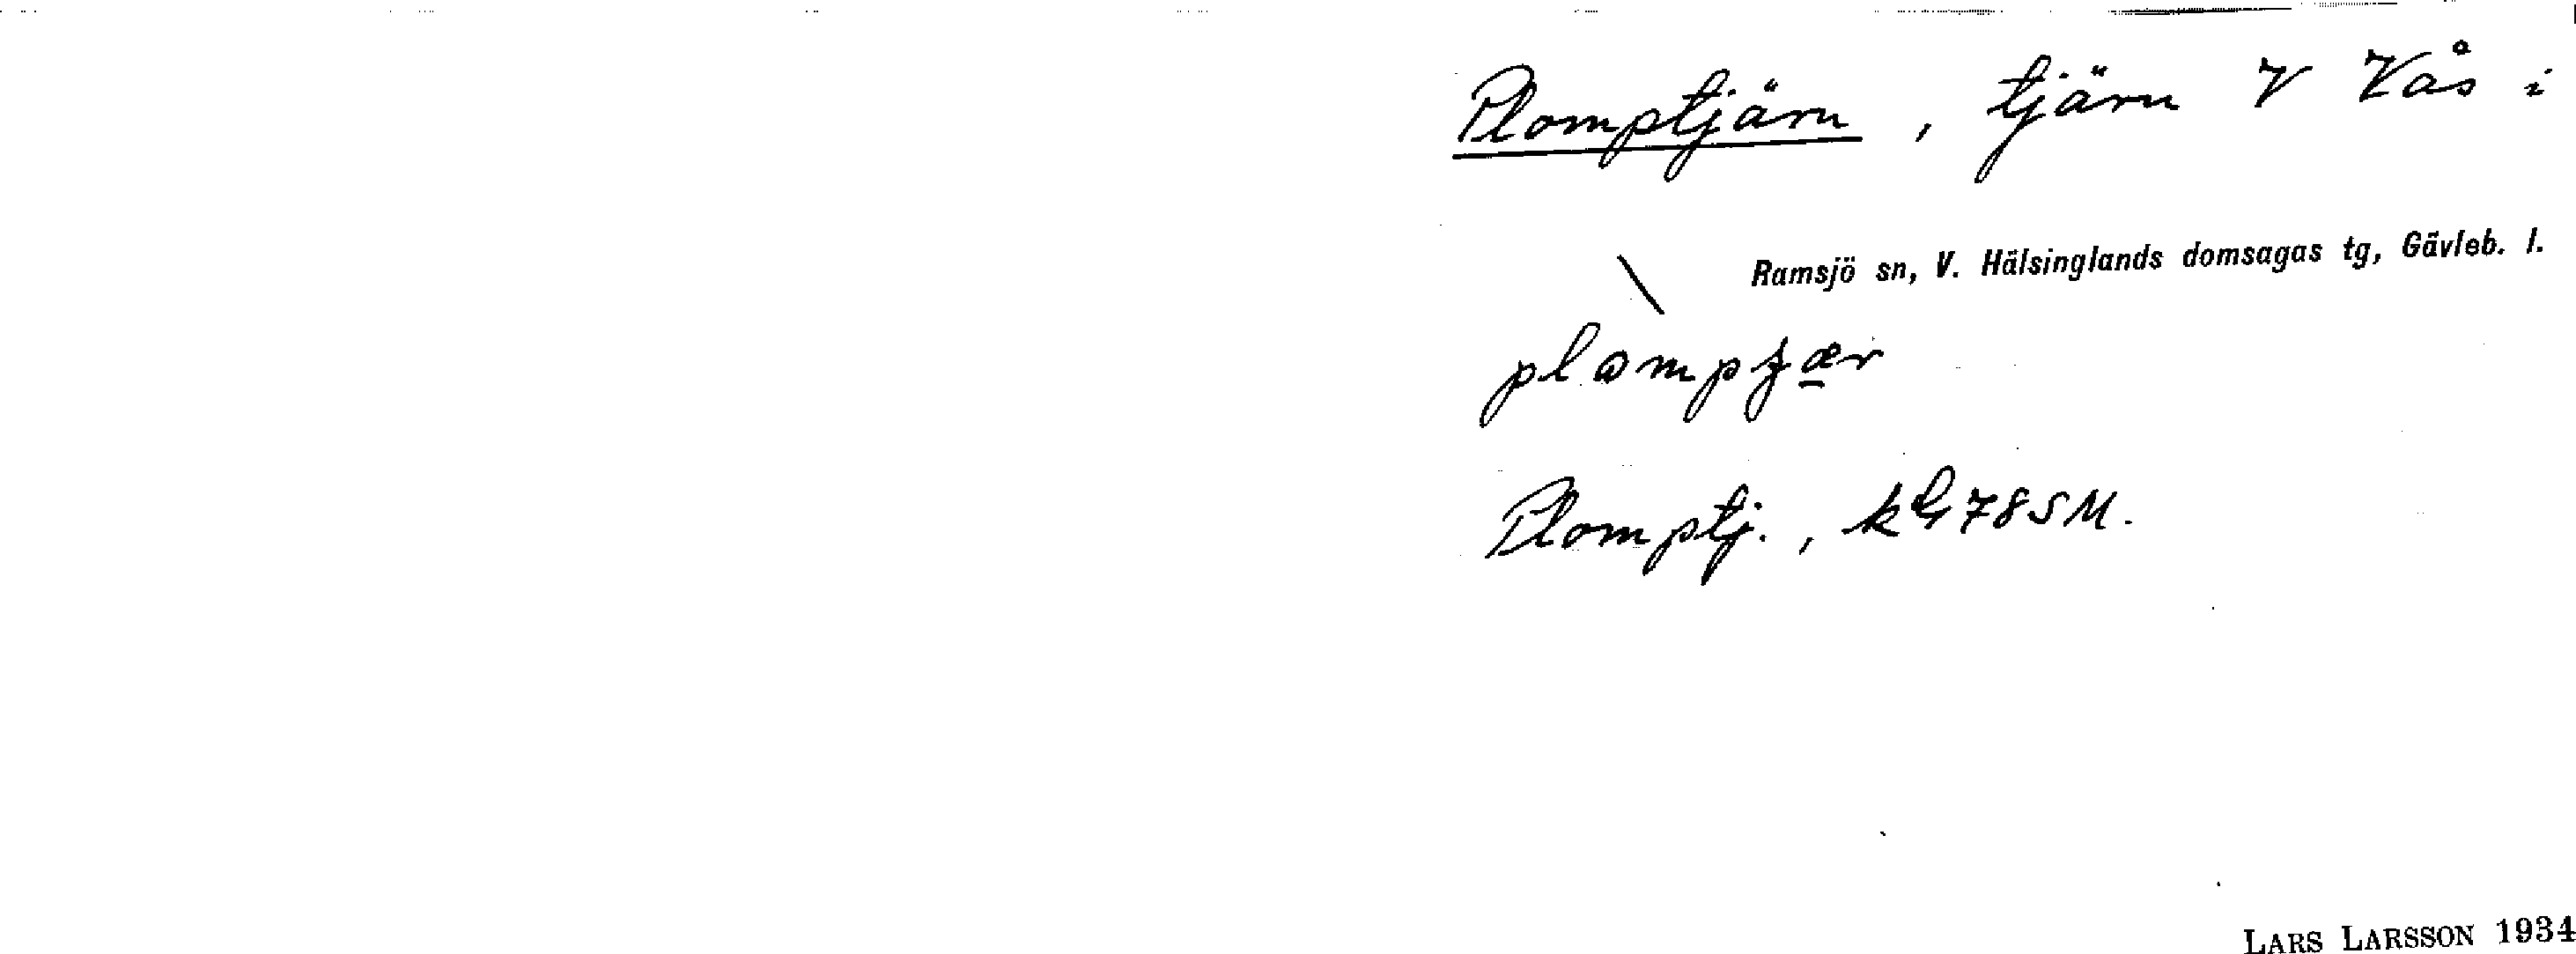 Plomptjärn, tjärn V Vås i
Ramsjö sn, V. Hälsinglands domsagas tg, Gävleb. l.
Plomptj., k 78 SM.
LARS LARSSON 1934